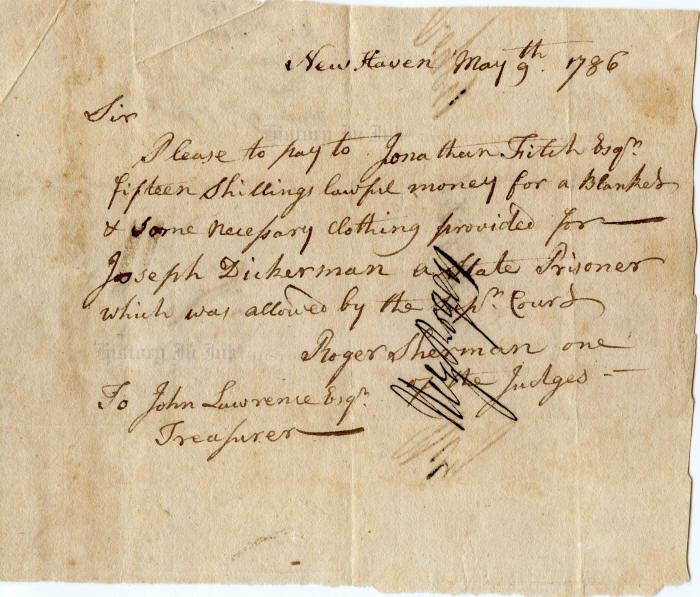 New Haven May 9th. 1786
Sir
Please to pay to Jonathan Fitch Esqr.
fifteen Shillings lawful money for a Blanket
& some necessary clothing provided for
Joseph Dickerman a State Prisoner
which was allowed by the Supr. Court
Roger Sherman one
of the Judges
To John Lawrence Esqr.
Treasurer
History In Ink
History In Ink